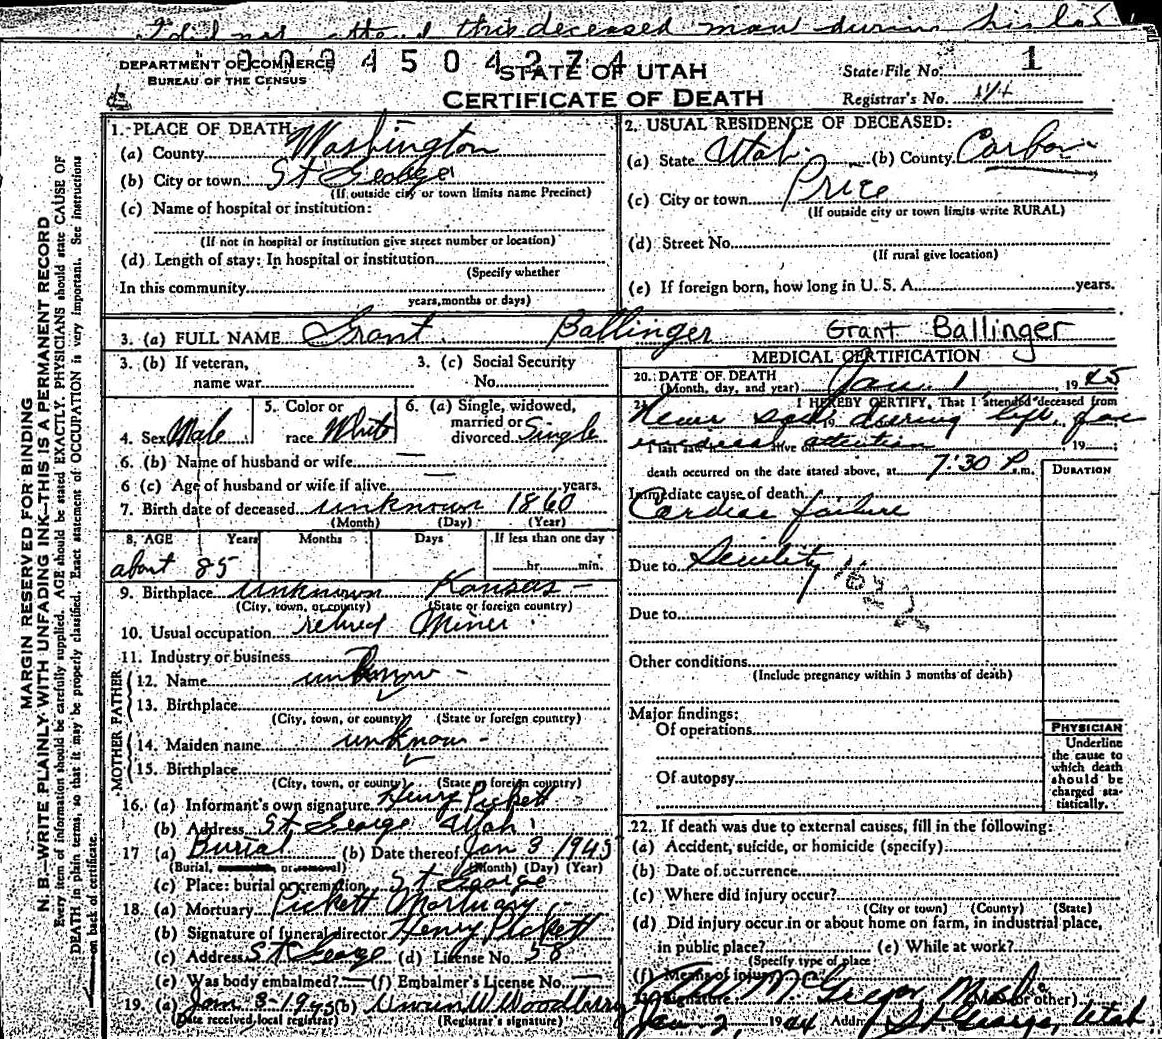 I did not attend this deceased man during his las
DEPARTMENT OF COMMERCE
BUREAU OF THE CENSUS
004504274
STATE OF UTAH
CERTIFICATE OF DEATH
State File No. 1
Registrar's No.
MARGIN RESERVED FOR BINDING
N. B.—WRITE PLAINLY WITH UNFADING INK—THIS IS A PERMANENT RECORD
Every item of information should be carefully supplied. AGE should be stated EXACTLY. PHYSICIANS should state CAUSE OF
DEATH in plain terms, so that it may be properly classified. Exact statement of OCCUPATION is very important. See instructions
on back of certificate.
1. PLACE OF DEATH
(a) County Washington
(b) City or town St George
(If outside city or town limits name Precinct)
(c) Name of hospital or institution:
(If not in hospital or institution give street number or location)
(d) Length of stay: In hospital or institution
(Specify whether
In this community
years, months or days)
2. USUAL RESIDENCE OF DECEASED:
(a) State Utah (b) County Carbon
(c) City or town Price
(If outside city or town limits write RURAL)
(d) Street No.
(If rural give location)
(e) If foreign born, how long in U. S. A. years.
3. (a) FULL NAME Grant Ballinger Grant Ballinger
3. (b) If veteran,
name war
3. (c) Social Security
No.
4. Sex Male
5. Color or
race White
6. (a) Single, widowed,
married or
divorced Single
6. (b) Name of husband or wife —
6 (c) Age of husband or wife if alive — years.
7. Birth date of deceased unknown 1860
(Month) (Day) (Year)
8. AGE Years Months Days If less than one day
about 85 hr. min.
9. Birthplace unknown Kansas –
(City, town, or county) (State or foreign country)
10. Usual occupation retired Miner
11. Industry or business
FATHER
12. Name unknow –
13. Birthplace
(City, town, or county) (State or foreign country)
MOTHER
14. Maiden name unknow –
15. Birthplace
(City, town, or county) (State or foreign country)
16. (a) Informant's own signature Henry Pickett
(b) Address St George Utah
17 (a) Burial (b) Date thereof Jan 3 1945
(Burial, cremation, or removal) (Month) (Day) (Year)
(c) Place: burial or cremation St George
18. (a) Mortuary Pickett Mortuary
(b) Signature of funeral director Henry Pickett
(c) Address St George (d) License No. 58
(e) Was body embalmed? — (f) Embalmer's License No. —
19. (a) Jan 3-1945 (b) Woodbury
(Date received local registrar) (Registrar's signature)
MEDICAL CERTIFICATION
20. DATE OF DEATH
(Month, day, and year) Jan. 1, 1945
21. I HEREBY CERTIFY, That I attended deceased from
Never saw during life for
medical attention
I last saw h alive on 19
death occurred on the date stated above, at 7:30 P.m.
DURATION
Immediate cause of death
Cardiac failure
Due to Senility 162
Due to
Other conditions
(Include pregnancy within 3 months of death)
Major findings:
Of operations
Of autopsy
PHYSICIAN
Underline
the cause to
which death
should be
charged sta-
tistically.
22. If death was due to external causes, fill in the following:
(a) Accident, suicide, or homicide (specify)
(b) Date of occurrence
(c) Where did injury occur?
(City or town) (County) (State)
(d) Did injury occur in or about home on farm, in industrial place,
in public place? (e) While at work?
(Specify type of place
(f) Means of injury
23. Signature McGregor M.D. (M. D. or other)
Jan 2, 1944 Addr St George, Utah